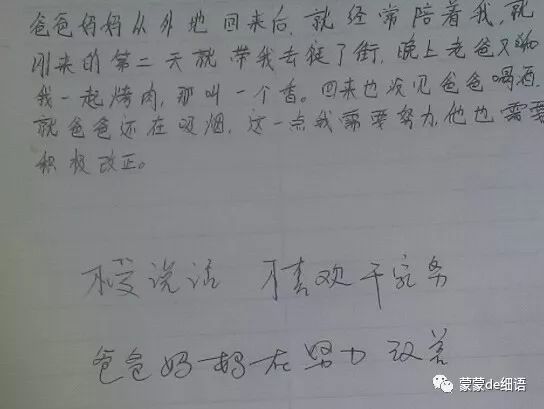 爸爸妈妈从外地回来后,就经常陪着我,就
刚来的第二天就带我去逛了街,晚上老爸又和
我一起烤肉,那叫一个香。回来也没见爸爸喝酒,
就爸爸还在吸烟,这一点我需要努力,他也需要
积极改正。
不爱说话 不喜欢干家务
爸爸妈妈在努力改善
蒙蒙de细语